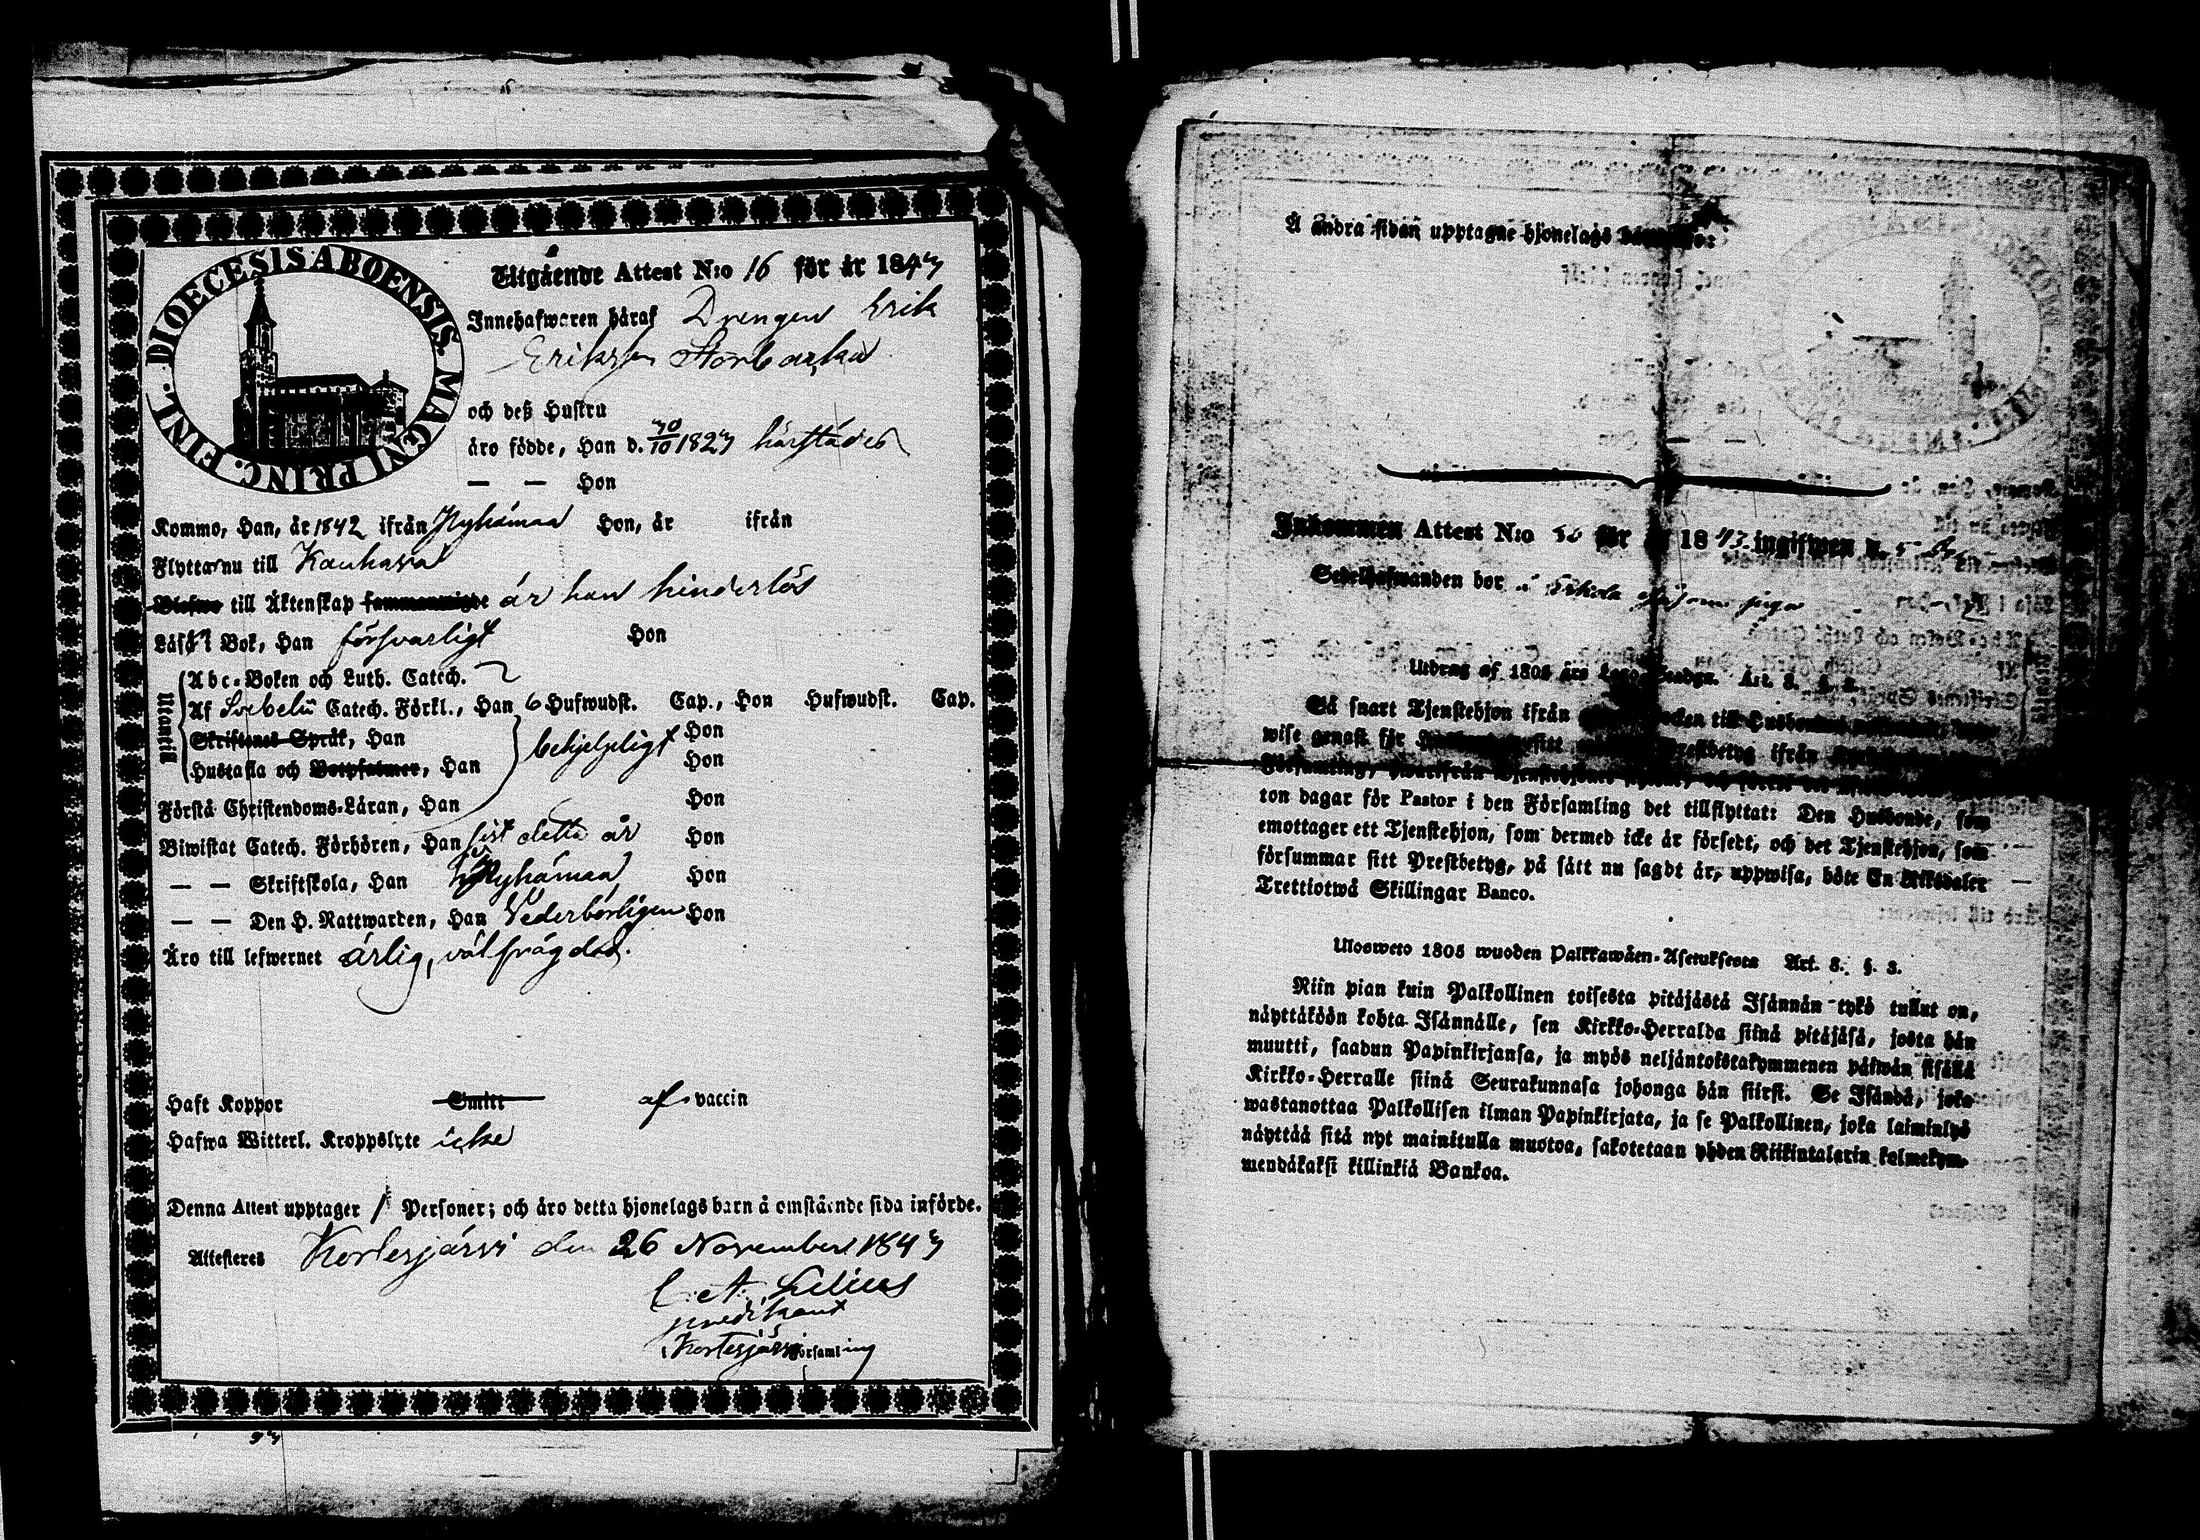 DIOECESIS ABOENSIS. MAGNI PRINC. FINL.
Utgående Attest N:o 16 för år 1847
Innehafwaren häraf Drengen Erik
Eriksson Storbacka
och deß Hustru
äro födde, Han d. 30/10 1827 härstädes
— — Hon
Kommo, Han, år 1842 ifrån Nyhämaa Hon, år ifrån
Flyttar nu till Kauhava
till Äktenskap är han hinderlös
Läsa i Bok, Han försvarligt Hon
Utantill
Abc-Boken och Luth. Catech.
Af Svebelii Catech. Förkl., Han 6 Hufwudst. Cap., Hon Hufwudst. Cap.
Skriftenes Språk, Han Hon
Hustafla och Botpsalmer, Han behjelpligt Hon
Förstå Christendoms-Läran, Han Hon
Biwistat Catech. Förhören, Han sist detta år Hon
— — Skriftskola, Han i Nyhämaa Hon
— — Den H. Nattwarden, Han Vederbörligen Hon
Äro till lefwernet ärlig, välfrägdad.
Haft Koppor Smitt af vaccin
Hafwa Witterl. Kroppslyte icke
Denna Attest upptager 1 Personer; och äro detta hjonelags barn å omstående sida införde.
Attesteres Kortesjärvi den 26 November 1847
C. A. Lilius
predikant
Kortesjärvi Församling
Å andra sidan upptagne hjonelags
Inkommen Attest N:o för år 1847 ingifwen d.
Sedelhafwanden bor
Utdrag af 1805 års Lego-Stadga. Art. 8. §. 3.
Så snart Tjenstehjon ifrån till
wise genast för sitt Prestbetyg ifrån
Församling,
ton dagar för Pastor i den Församling det tillflyttat: Den Husbonde, som
emottager ett Tjenstehjon, som dermed icke är försedt, och det Tjenstehjon, som
försummar sitt Prestbetyg, på sätt nu sagdt är, uppwisa, böte En Riksdaler
Trettiotwå Skillingar Banco.
Ulosweto 1805 wuoden Palkkawäen-Asetuksesta Art. 8. §. 3.
Niin pian kuin Palkollinen toisesta pitäjästä Isännän tykö tullut on,
näyttäköön kohta Isännälle, sen Kirkko-Herralda siinä pitäjäsä, josta hän
muutti, saadun Papinkirjansa, ja myös neljäntoistakymmenen päiwän sisällä
Kirkko-Herralle siinä Seurakunnasa johonga hän siirsi. Se Isändä, joka
wastanottaa Palkollisen ilman Papinkirjata, ja se Palkollinen, joka laiminlyö
näyttää sitä nyt mainitulla muotoa, sakotetaan yhden Riikintalarin kolmekym-
mendäkaksi killinkiä Bankoa.